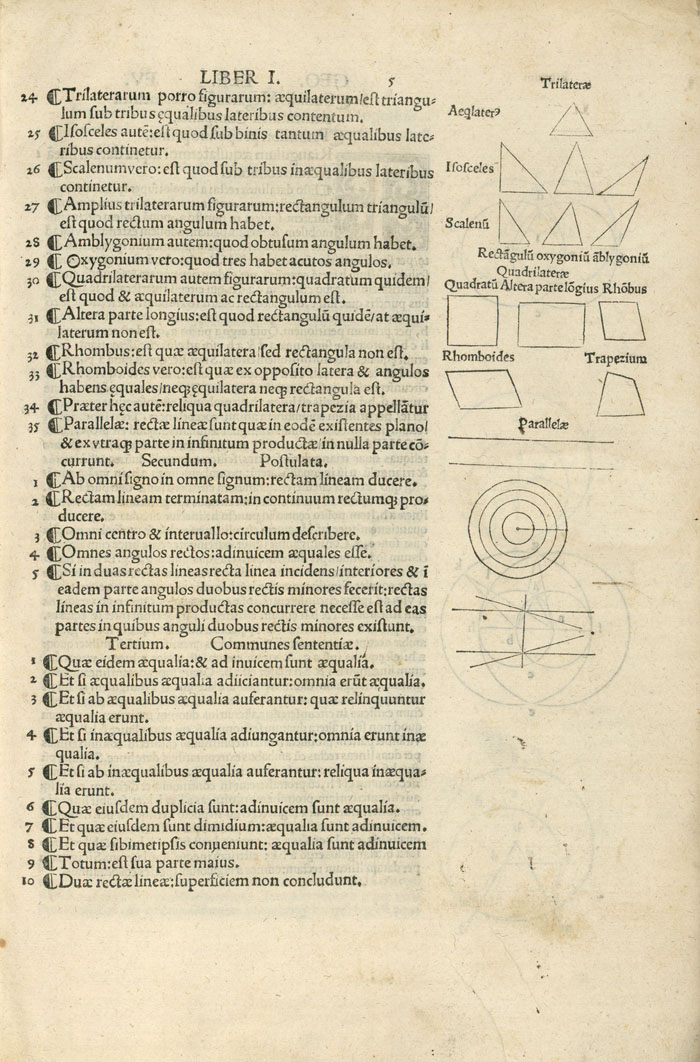 LIBER I. 5
24 ¶Trilaterarum porro figurarum: æquilaterum/est triangu-
lum sub tribus ęqualibus lateribus contentum.
25 ¶Isosceles autē: est quod sub binis tantum æqualibus late-
ribus continetur.
26 ¶Scalenum vero: est quod sub tribus inæqualibus lateribus
continetur.
27 ¶Amplius trilaterarum figurarum: rectangulum triangulū/
est quod rectum angulum habet.
28 ¶Amblygonium autem: quod obtusum angulum habet.
29 ¶Oxygonium vero: quod tres habet acutos angulos.
30 ¶Quadrilaterarum autem figurarum: quadratum quidem/
est quod & æquilaterum ac rectangulum est.
31 ¶Altera parte longius: est quod rectangulū quidē/at æqui-
laterum non est.
32 ¶Rhombus: est quæ æquilatera/sed rectangula non est.
33 ¶Rhomboides vero: est quæ ex opposito latera & angulos
habens ęquales/neqꝫ ęquilatera neqꝫ rectangula est.
34 ¶Præter hęc autē: reliqua quadrilatera/trapezia appellātur
35 ¶Parallelæ: rectæ lineæ sunt quæ in eodē existentes plano/
& ex vtraqꝫ parte in infinitum productæ/in nulla parte cō-
currunt. Secundum. Postulata.
1 ¶Ab omni signo in omne signum: rectam lineam ducere.
2 ¶Rectam lineam terminatam: in continuum rectumqꝫ pro-
ducere.
3 ¶Omni centro & interuallo: circulum describere.
4 ¶Omnes angulos rectos: adinuicem æquales esse.
5 ¶Si in duas rectas lineas recta linea incidens/interiores & ī
eadem parte angulos duobus rectis minores fecerit: rectas
lineas in infinitum productas concurrere necesse est ad eas
partes in quibus anguli duobus rectis minores existunt.
Tertium. Communes sententiæ.
1 ¶Quæ eidem æqualia: & ad inuicem sunt æqualia.
2 ¶Et si æqualibus æqualia adiiciantur: omnia erūt æqualia.
3 ¶Et si ab æqualibus æqualia auferantur: quæ relinquuntur
æqualia erunt.
4 ¶Et si inæqualibus æqualia adiungantur: omnia erunt inæ
qualia.
5 ¶Et si ab inæqualibus æqualia auferantur: reliqua inæqua-
lia erunt.
6 ¶Quæ eiusdem duplicia sunt: adinuicem sunt æqualia.
7 ¶Et quæ eiusdem sunt dimidium: æqualia sunt adinuicem.
8 ¶Et quæ sibimetipsis conueniunt: æqualia sunt adinuicem
9 ¶Totum: est sua parte maius.
10 ¶Duæ rectæ lineæ: superficiem non concludunt.
Trilateræ
Aeqlaterꝰ
Isosceles
Scalenū
Rectāgulū oxygoniū āblygoniū
Quadrilateræ
Quadratū Altera parte lōgius Rhōbus
Rhomboides Trapezium
Parallelæ